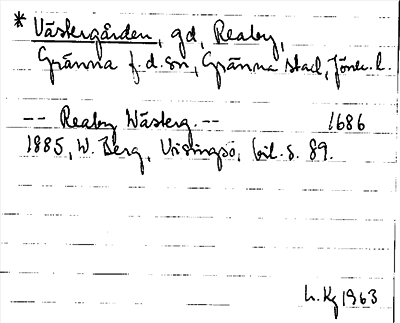 * Västergården, gd, Reaby,
Gränna f.d. sn, Gränna stad, Jönk. l.
-- Reaby Wästerg. -- 1686
1885, W. Berg, Visingsö, bil. s. 89.
L. Kg 1963